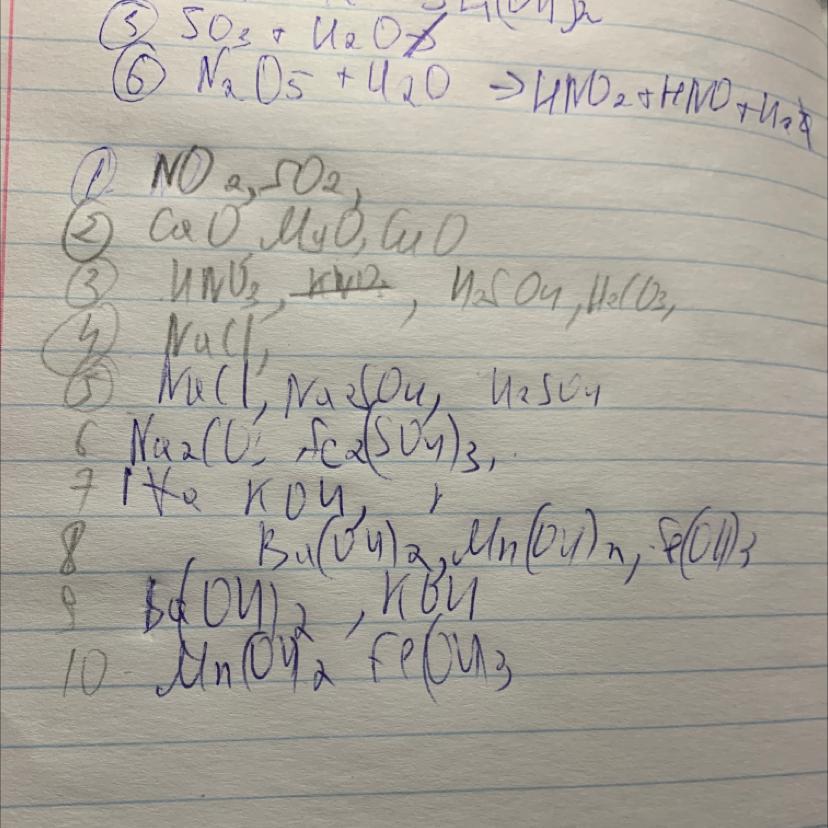 (OH)2
⑤ SO3 + H2O
⑥ N2O5 + H2O → HNO2 + HNO + H2
① NO2, SO2,
② CaO MgO, CuO
③ HNO3, , H2SO4, H2CO3,
④ NaCl,
⑤ NaCl, Na2SO4, H2SO4
6 Na2CO Fe2(SO4)3,
7 KOH,
8 Ba(OH)2, Mn(OH)2, Fe(OH)3
9 Ba(OH)2, KOH
10 Mn(OH)2 Fe(OH)3